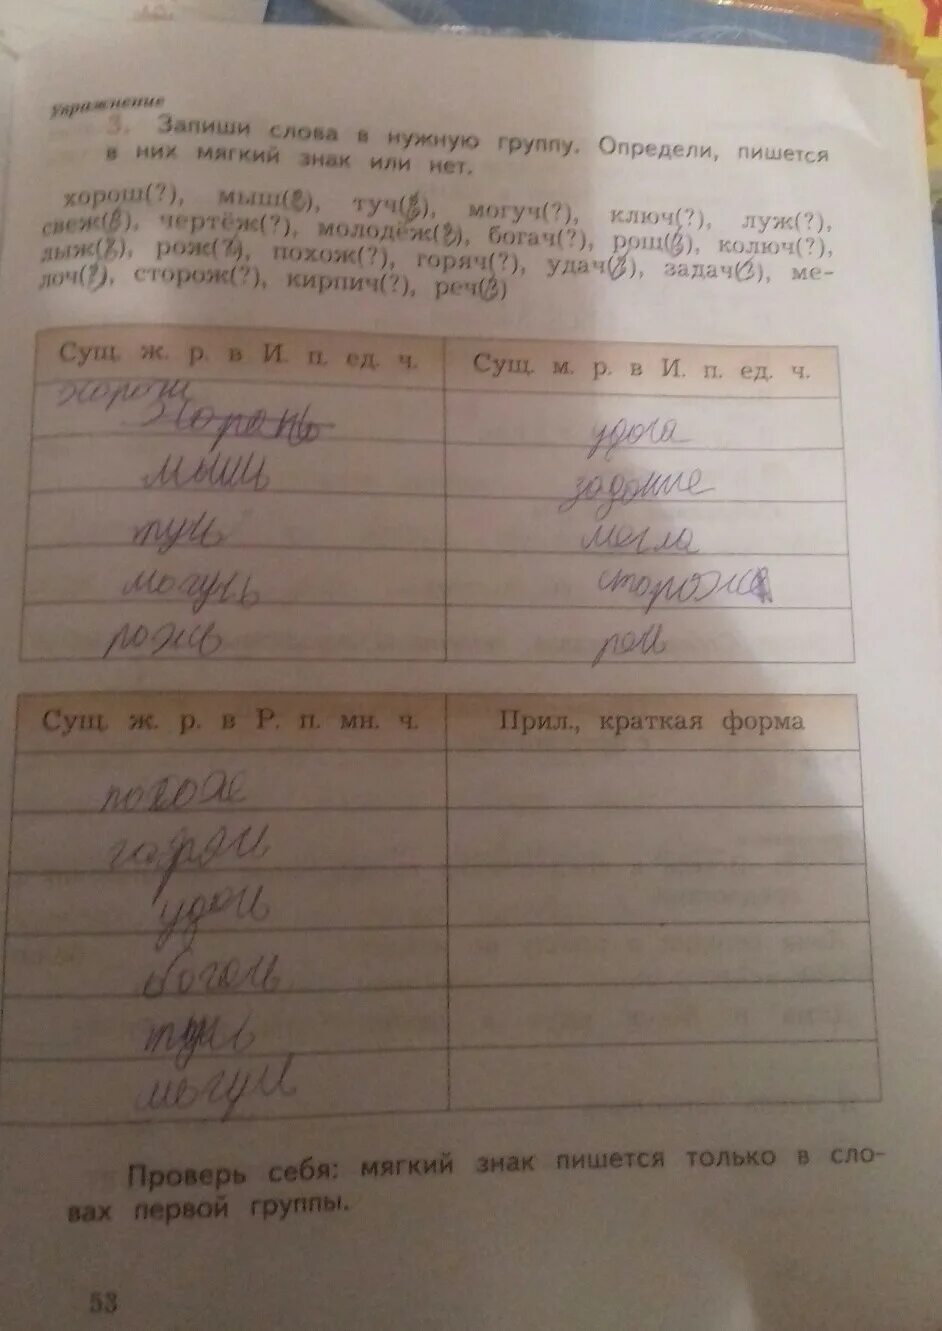 Упражнение
3. Запиши слова в нужную группу. Определи, пишется
в них мягкий знак или нет.
хорош(?), мыш(?), туч(?), могуч(?), ключ(?), луж(?),
свеж(?), чертёж(?), молодёж(?), богач(?), рощ(?), колюч(?),
лыж(?), рож(?), похож(?), горяч(?), удач(?), задач(?), ме-
лоч(?), сторож(?), кирпич(?), реч(?)
Сущ. ж. р. в И. п. ед. ч. Сущ. м. р. в И. п. ед. ч.
хорош
мышь задание
могла
могучь сторож
рожь
Сущ. ж. р. в Р. п. мн. ч. Прил., краткая форма
похож
горяч
удач
могуч
Проверь себя: мягкий знак пишется только в сло-
вах первой группы.
53